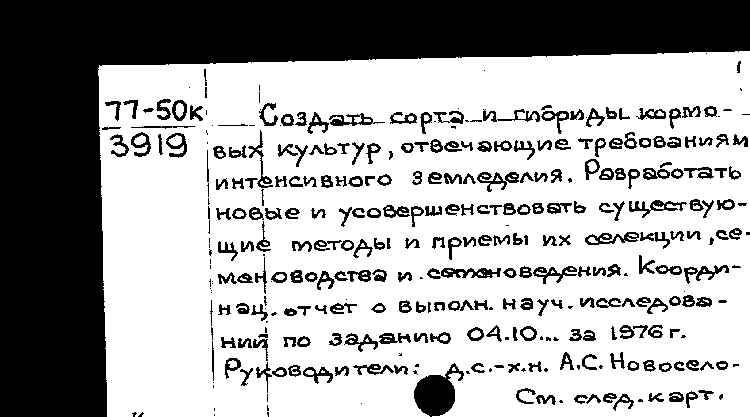 77-50к
3919
Создать сорта и гибриды кормо-
вых культур, отвечающие требованиям
интенсивного земледелия. Разработать
новые и усовершенствовать существую-
щие методы и приемы их селекции, се-
меноводства и семеноведения. Коорди-
нац. отчет о выполн. науч. исследова-
ний по заданию 04.10... за 1976 г.
Руководители: д.с.-х.н. А.С. Новосело-
См. след. карт.